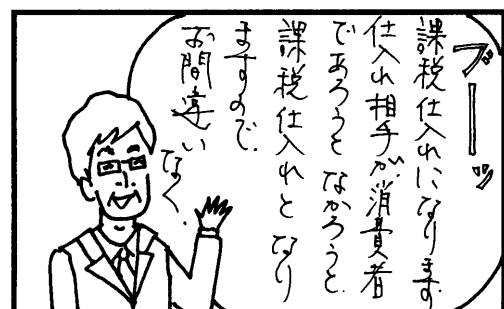 ブーーッ
課税仕入れになります。
仕入れ相手が、消費者
であろうと なかろうと、
課税仕入れと なり
ますので、
お間違い
なく。